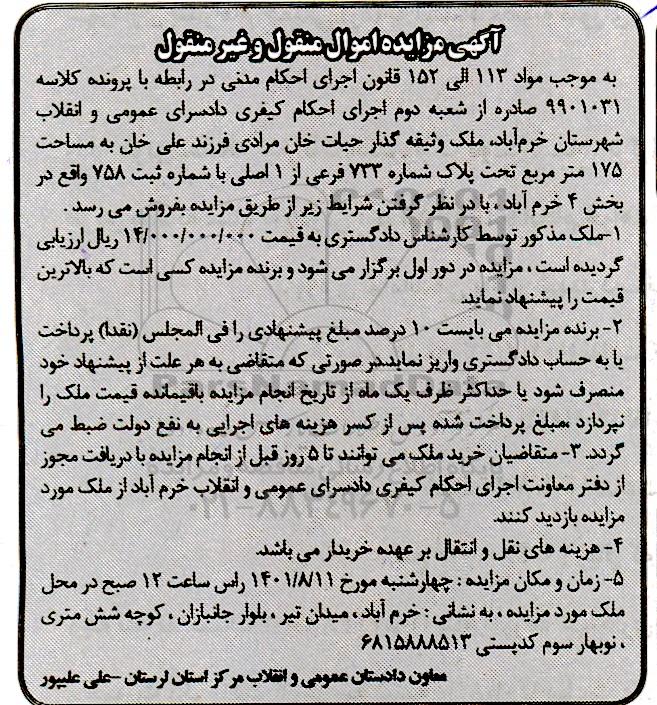 آگهی مزایده اموال منقول و غیر منقول
به موجب مواد ۱۱۳ الی ۱۵۲ قانون اجرای احکام مدنی در رابطه با پرونده کلاسه
۹۹۰۱۰۳۱ صادره از شعبه دوم اجرای احکام کیفری دادسرای عمومی و انقلاب
شهرستان خرم‌آباد، ملک وثیقه گذار حیات خان مرادی فرزند علی خان به مساحت
۱۷۵ متر مربع تحت پلاک شماره ۷۳۳ فرعی از ۱ اصلی با شماره ثبت ۷۵۸ واقع در
بخش ۴ خرم آباد ، با در نظر گرفتن شرایط زیر از طریق مزایده بفروش می رسد .
۱-ملک مذکور توسط کارشناس دادگستری به قیمت ۱۴/۰۰۰/۰۰۰/۰۰۰ ریال ارزیابی
گردیده است ، مزایده در دور اول برگزار می شود و برنده مزایده کسی است که بالاترین
قیمت را پیشنهاد نماید.
۲- برنده مزایده می بایست ۱۰ درصد مبلغ پیشنهادی را فی المجلس (نقدا) پرداخت
یا به حساب دادگستری واریز نماید.در صورتی که متقاضی به هر علت از پیشنهاد خود
منصرف شود یا حداکثر ظرف یک ماه از تاریخ انجام مزایده باقیمانده قیمت ملک را
نپردازد ،مبلغ پرداخت شده پس از کسر هزینه های اجرایی به نفع دولت ضبط می
گردد. ۳- متقاضیان خرید ملک می توانند تا ۵ روز قبل از انجام مزایده با دریافت مجوز
از دفتر معاونت اجرای احکام کیفری دادسرای عمومی و انقلاب خرم آباد از ملک مورد
مزایده بازدید کنند.
۴- هزینه های نقل و انتقال بر عهده خریدار می باشد.
۵- زمان و مکان مزایده : چهارشنبه مورخ ۱۴۰۱/۸/۱۱ راس ساعت ۱۲ صبح در محل
ملک مورد مزایده ، به نشانی : خرم آباد ، میدان تیر ، بلوار جانبازان ، کوچه شش متری
، نوبهار سوم کدپستی ۶۸۱۵۸۸۸۵۱۳
معاون دادستان عمومی و انقلاب مرکز استان لرستان -علی علیپور